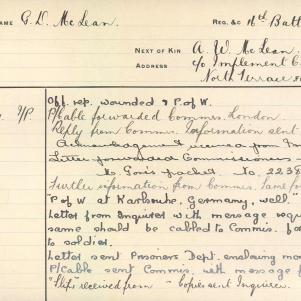 NAME G. D. McLean. REG. &c 4th Batt
NEXT OF KIN A. W. McLean.
ADDRESS c/o Implement C
North Terrace
Off. rep. wounded & P. of W.
P/Cable forwarded Commrs. London.
Reply from Commrs. Information sent
Letter forwarded Commissioners
packet No. 2239
Further information from Commrs. Same for
"P of W at Karlsruhe, Germany, well."
Letter from Inquirer with message
same should be cabled to Commis. for
to soldier.
Letter sent Prisoners Dept. enclosing mo
P/Cable sent Commis. with message f
"Slip" received from - Copies sent Inquirer.